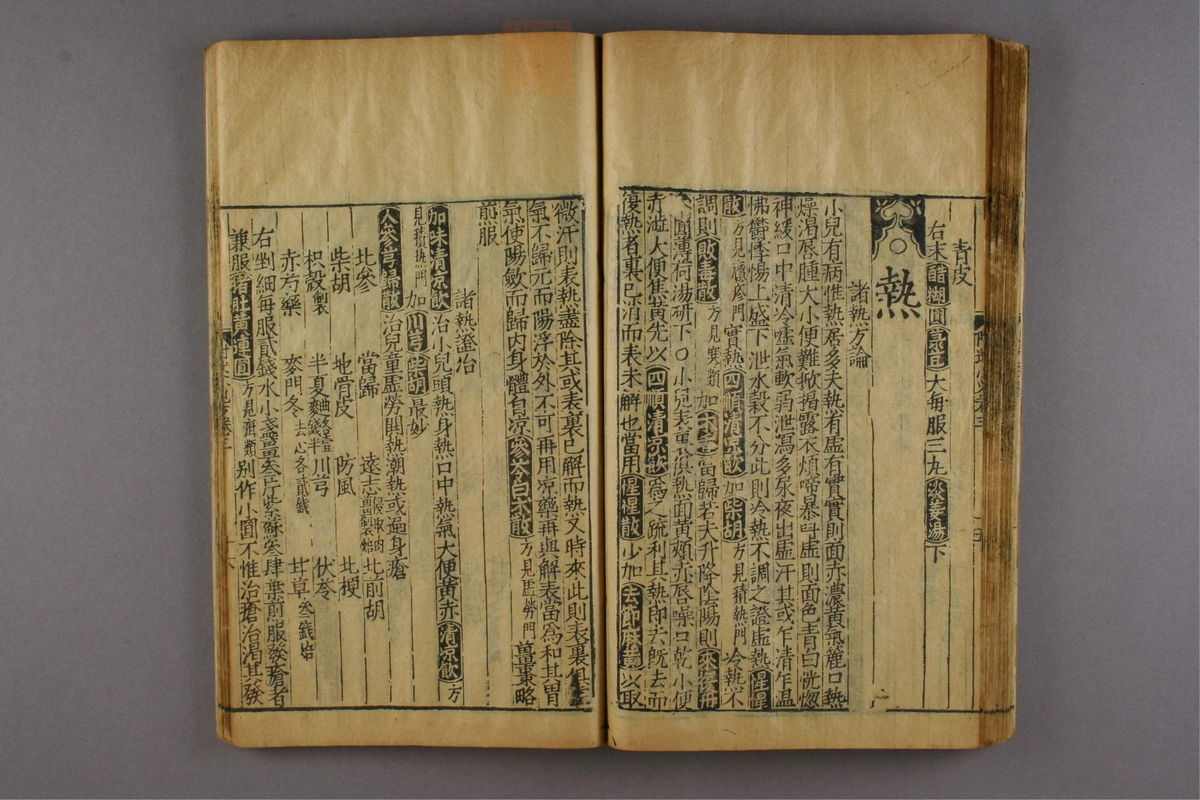 青皮
右末醋糊圓大每服三九淡姜湯下
熱
諸熱方論
小兒有病惟熱居多夫熱有虛有實實則面赤濃黃氣麄口熱
燥渴唇腫大小便難掀揭露衣煩啼暴叫虛則面色青白恍惚
神緩口中清冷虛氣軟弱泄瀉多尿夜出虛汗其或乍清乍温
怫鬱悸惕上盛下泄水穀不分此則冷熱不調之證虛熱惺惺
散方見㿀疹門實熱四順清凉飲加柴胡方見積熱門冷熱不
調則敗毒散方見寒類加木香當歸若大升降陰陽則來復丹
圓薄荷湯研下○小兒表裏俱熱面黃頰赤唇噪口乾小便
赤澁大便焦黃先以四順清凉飲為之疏利其熱即去旣去而
復熱者裏已消而表未解也當用惺惺散少加去節麻黃以取
微汗則表熱盡除其或表裏已解而熱又時來此則表裏俱
氣不歸元而陽浮於外不可再用凉藥再與解表當為和其胃
氣使陽斂而歸內身體自凉參苓白朮散方見虛勞門薑棗略
煎服
諸熱證治
加味清凉飲治小兒頭熱身熱口中熱氣大便黃赤清凉飲方
見積熱門加川芎柴胡最妙
人參芎歸散治兒童虛勞関熱潮熱或遍身瘡
北參 當歸 遠志 北前胡
柴胡 地骨皮 防風 北梗
枳殼製 半夏 川芎 伏苓
赤芍藥 麥門冬去心各貳錢 甘草叁錢焙
右剉細每服貳錢水小盞薑叁片紫蘇叁肆葉煎服發瘡者
兼服猪肚黃連圓方見疳類別作小圓不惟治瘡治渴其發